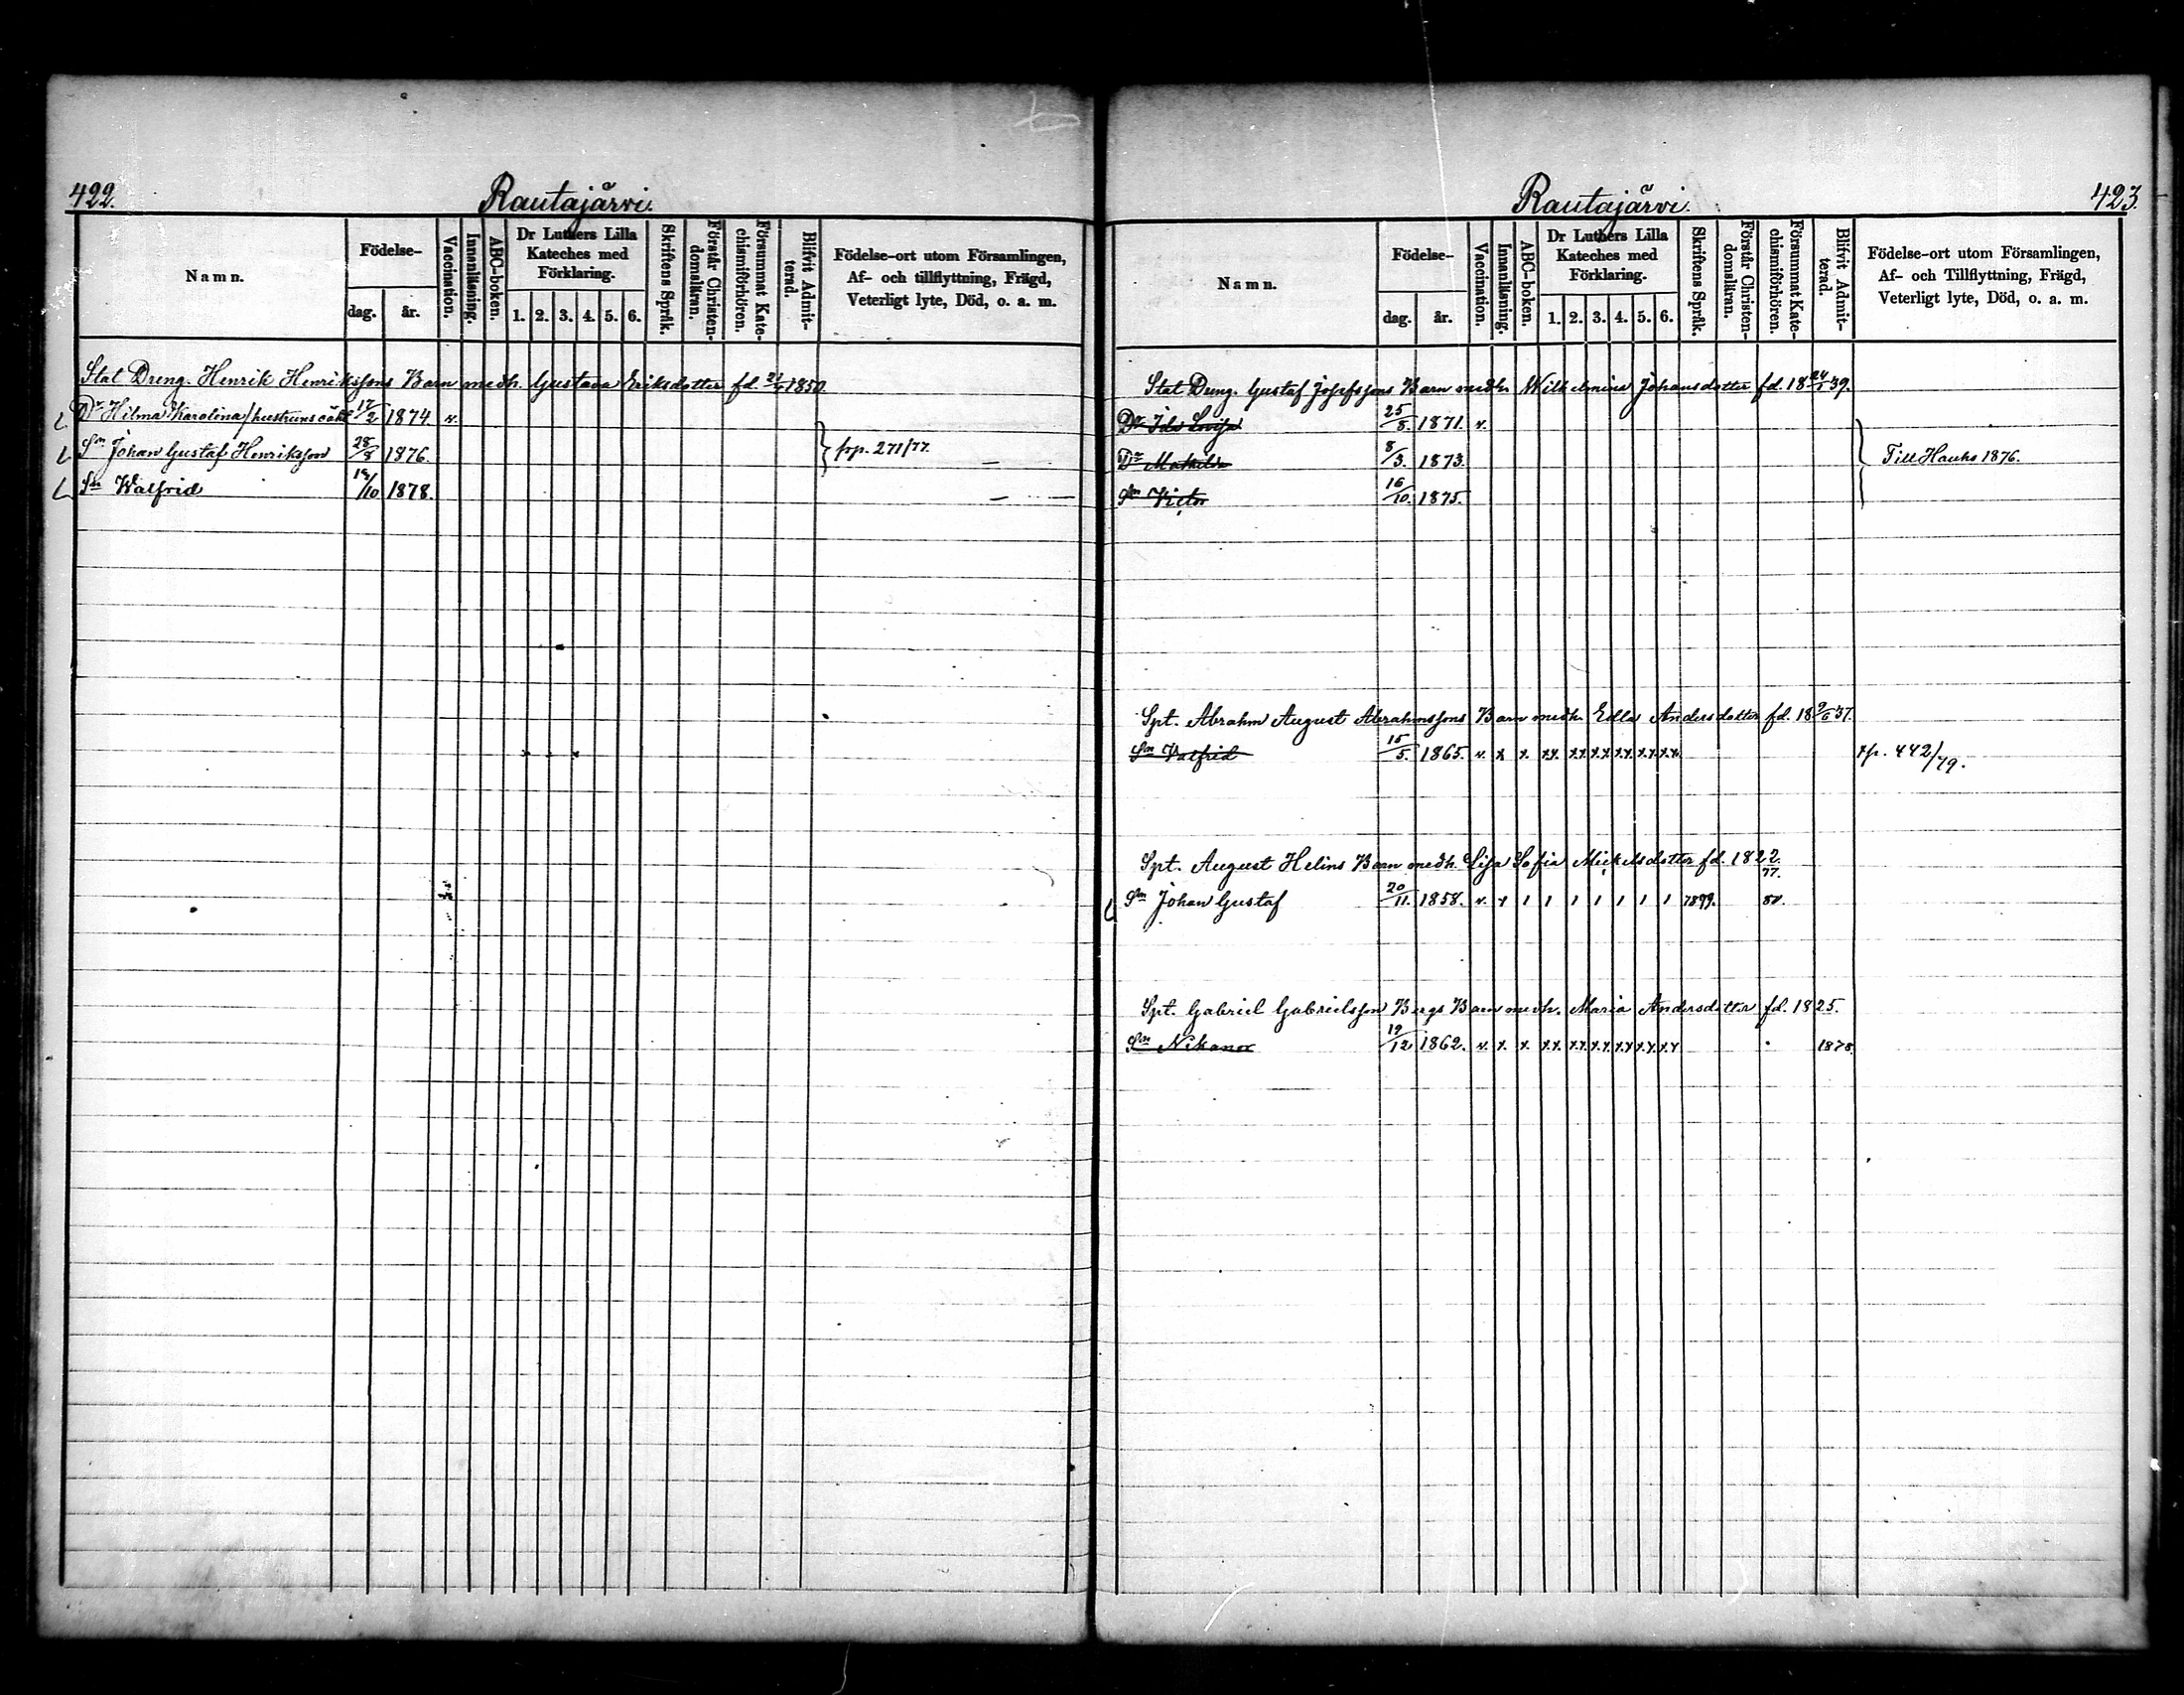 422.
Rautajärvi.
Namn.
Födelse-
dag.
år.
Vaccination.
Innanläsning.
ABC-boken.
Dr Luthers Lilla
Kateches med
Förklaring.
1. 2. 3. 4. 5. 6.
Skriftens Språk.
Förstår Christen-
domsläran.
Försummat Kate-
chismiförhören.
Blifvit Admit-
terad.
Födelse-ort utom Församlingen,
Af- och tillflyttning, Frägd,
Veterligt lyte, Död, o. a. m.
Stat Dreng. Henrik Henrikssons Barn medh. Gustava Eriksdotter fd. 1850
Dr Hilma Karolina /hustruns oäkt 17/2 1874 v.
Sn Johan Gustaf Henriksson 28/8 1876. frp. 271/77.
Sn Walfrid /10 1878.
423.
Rautajärvi.
Namn.
Födelse-
dag.
år.
Vaccination.
Innanläsning.
ABC-boken.
Dr Luthers Lilla
Kateches med
Förklaring.
1. 2. 3. 4. 5. 6.
Skriftens Språk.
Förstår Christen-
domsläran.
Försummat Kate-
chismiförhören.
Blifvit Admit-
terad.
Födelse-ort utom Församlingen,
Af- och Tillflyttning, Frägd,
Veterligt lyte, Död, o. a. m.
Stat Dreng. Gustaf Josefssons Barn medh. Wilhelmina Johansdotter fd. 18 24/1 39.
Dr Ida Lovisa 25/8. 1871. v.
Dr Mathilda 8/3. 1873. Till Hauho 1876.
Sn Victor 16/10. 1875.
Spt. Abrahm August Abrahmssons Barn medh. Edla Andersdotter fd. 18 9/6 37.
Sn Valfrid 15/5. 1865. v. x x. xx. xx. xx. xx. xx. xx. rp. 442/79.
Spt. August Helins Barn medh. Lisa Sofia Mickelsdotter fd. 1822.
77.
Sn Johan Gustaf 20/11. 1858. v. x 1 1 1 1 1 1 1 80.
Spt. Gabriel Gabrielsson Bergs Barn medh. Maria Andersdotter fd. 1825.
Sn Nikanor 19/12 1862. v. x. x. xx. xx. xx. xx xx. xx 1878.